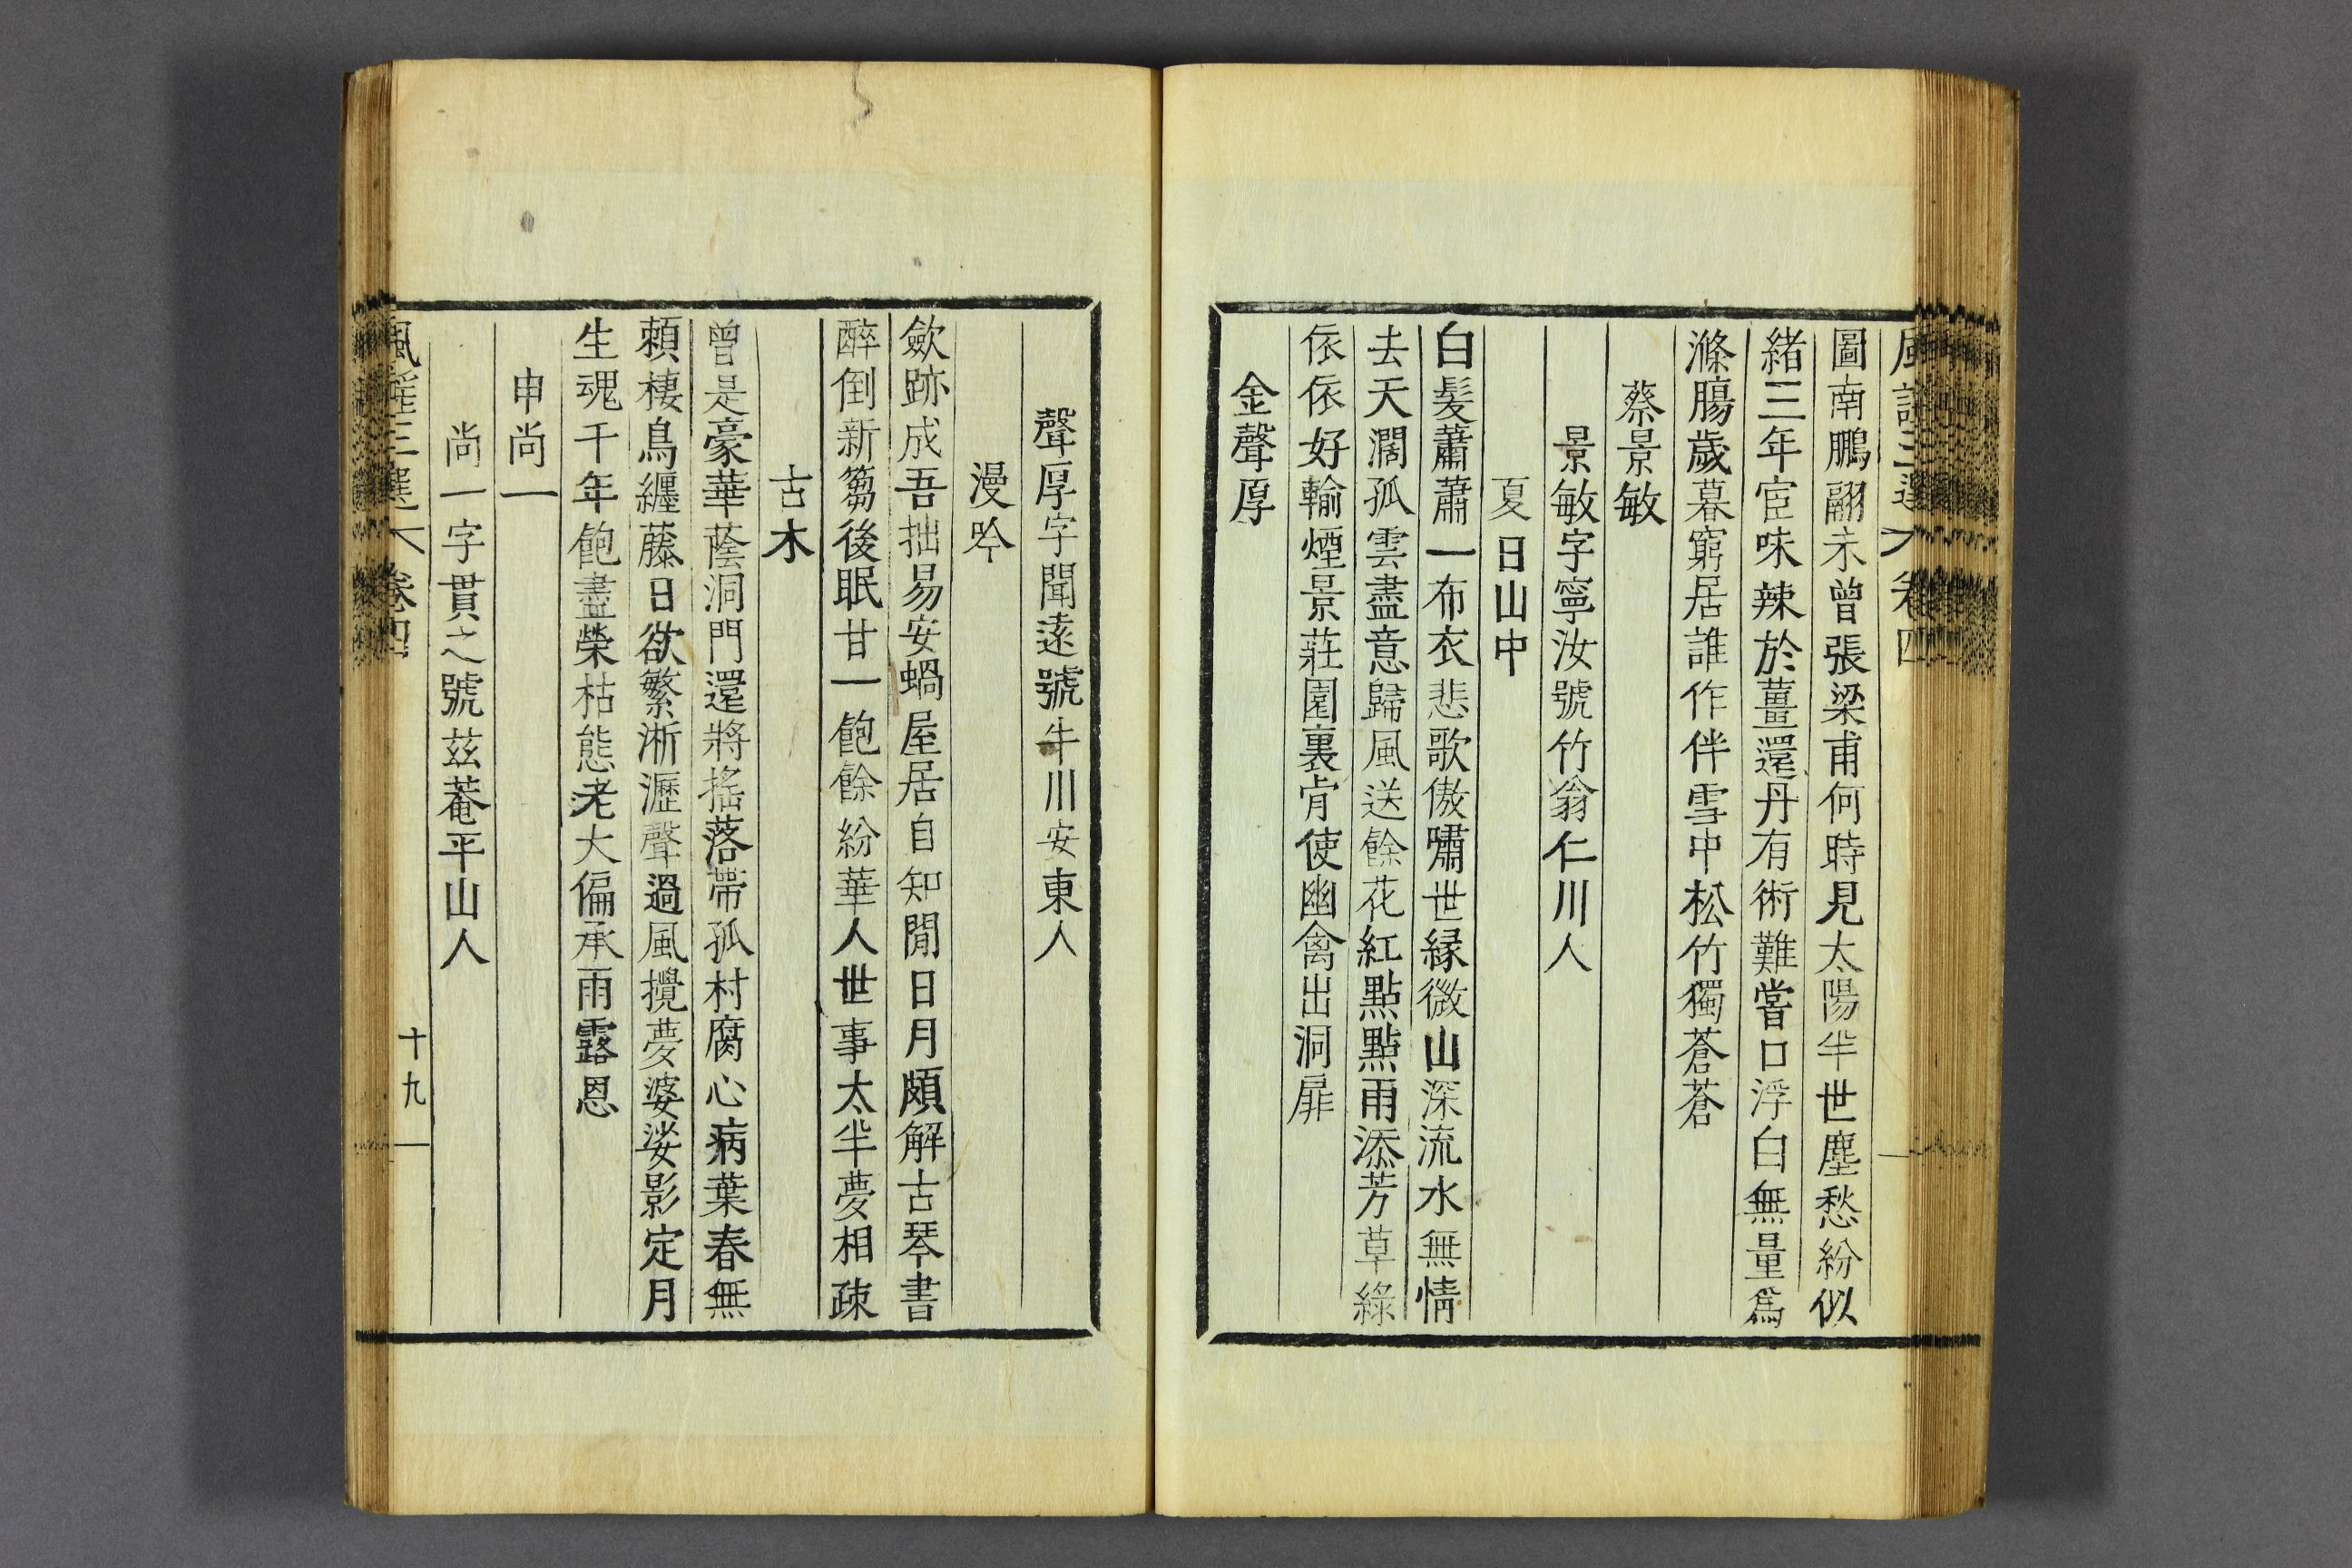 風謠三選 卷四
圖南鵬翮未曾張梁甫何時見太陽半世塵愁紛似
緖三年宦味辣於薑還丹有術難嘗口浮白無量爲
滌膓歲暮窮居誰作伴雪中松竹獨蒼蒼
蔡景敏
景敏字寧汝號竹翁仁川人
夏日山中
白髮蕭蕭一布衣悲歌傲嘯世縁微山深流水無情
去天濶孤雲盡意歸風送餘花紅點點雨添芳草綠
依依好輸煙景莊園裏肯使幽禽出洞扉
金聲厚
聲厚字聞遠號牛川安東人
漫吟
斂跡成吾拙易安蝸屋居自知閒日月頗解古琴書
醉倒新篘後眠甘一飽餘紛華人世事太半夢相疎
古木
曾是豪華蔭洞門還將搖落帶孤村腐心病葉春無
賴棲鳥纏藤日欲繁淅瀝聲過風攪夢婆娑影定月
生魂千年飽盡榮枯態老大偏承雨露恩
申尚一
尚一字貫之號茲菴平山人
風謠三選 卷四 十九